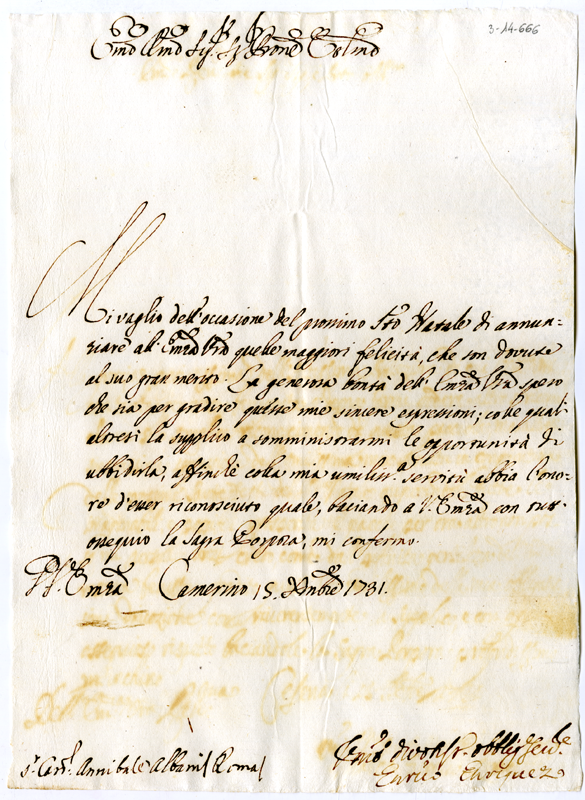 3-14-666
Emo Rmo Sig.r Sig.r Prone Colmo
Mi vaglio dell'occasione del prossimo Sto Natale di annun=
ziare all'Emza Vra quelle maggiori felicità, che son dovute
al suo gran merito. La generosa bontà dell'Emza Vra spero
che sia per gradire queste mie sincere espressioni; colle quali
altresì la supplico a somministrarmi le opportunità di
ubbidirla, affinchè colla mia umiliss.a servitù abbia l'ono=
re d'esser riconosciuto quale, baciando a V. Emza con tutt'
ossequio la Sagra Porpora, mi confermo.
Di V. Emza Camerino 15. Xnbre 1731.
S.r Card. Annibale Albani / Roma /
divotis.o obbligs.
Enrico Enriquez